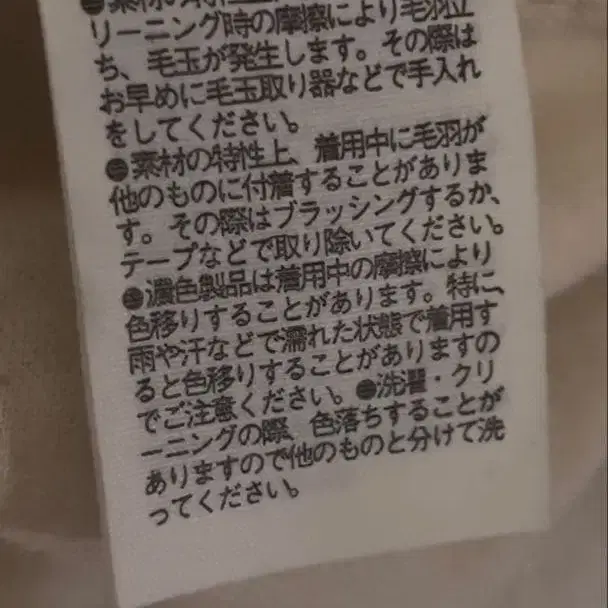 ●素材の特性上
リーニング時の摩擦により毛羽立
ち、毛玉が発生します。その際は
お早めに毛玉取り器などで手入れ
をしてください。
●素材の特性上、着用中に毛羽が
他のものに付着することがありま
す。その際はブラッシングするか、
テープなどで取り除いてください。
●濃色製品は着用中の摩擦により
色移りすることがあります。特に、
雨や汗などで濡れた状態で着用す
ると色移りすることがありますの
でご注意ください。●洗濯・クリ
ーニングの際、色落ちすることが
ありますので他のものと分けて洗
ってください。